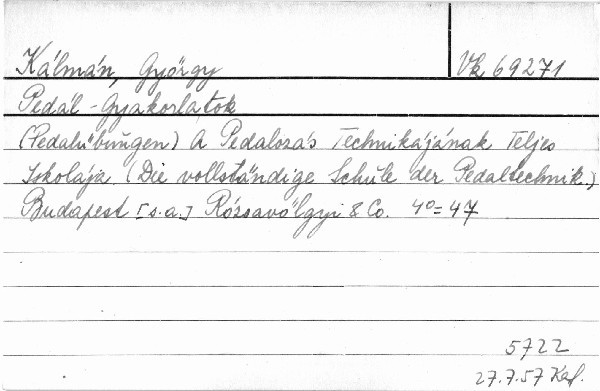 Kálmán, György
Vk 69271
Pedál-Gyakorlatok
(Pedalübungen) A Pedalozás Technikájának Teljes
Iskolája (Die vollständige Schule der Pedaltechnik.)
Budapest [s.a.] Rózsavölgyi & Co. 4º = 47
5722
27.7.57 Kaf.